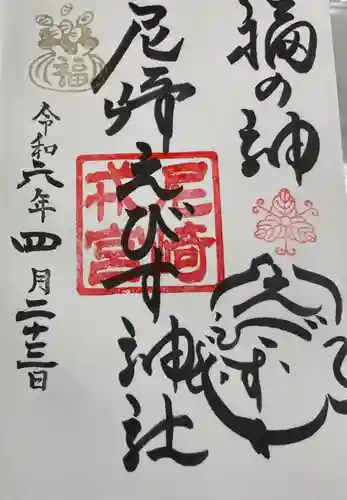 福の神
えびす
尼崎えびす神社
尼崎戎宮
福
令和六年四月二十三日